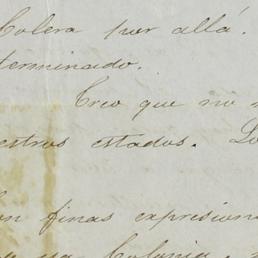 Colera por allá.
terminado.
Creo que no
estros estados. Lo
on finas expresion
una Colonia